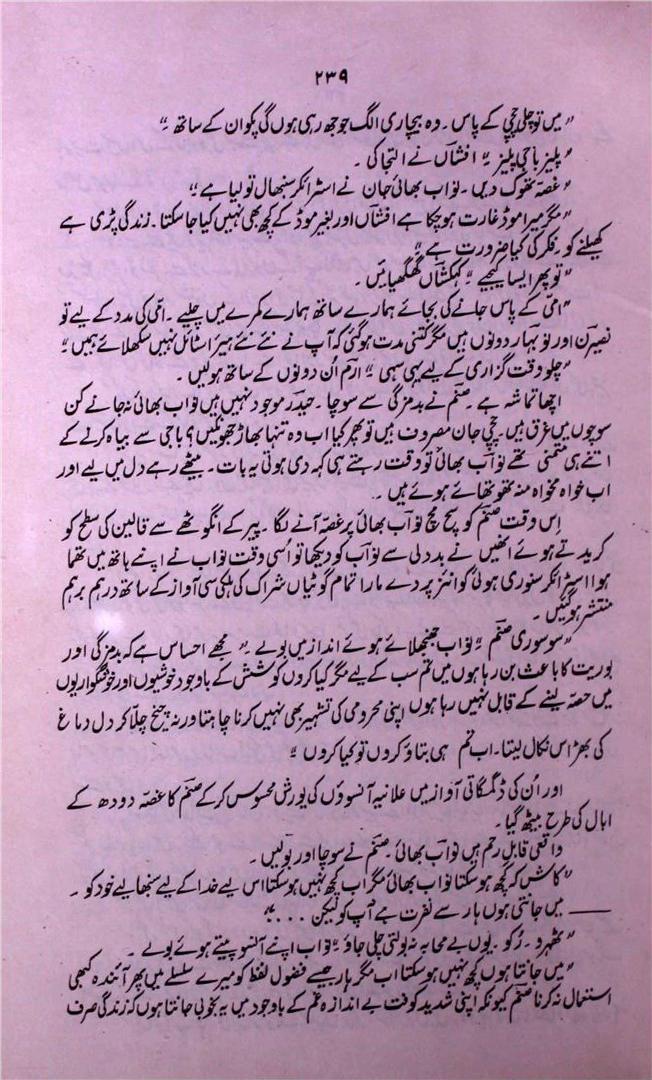 ۲۳۹
"میں تو چلی چچی کے پاس۔ وہ بیچاری الگ جوجھ رہی ہوں گی پکوان کے ساتھ۔"
"پلیز باجی پلیز۔" افشاں نے التجا کی۔
"غصہ تھوک دیں۔ نواب بھائی جان نے اسٹرائکر سنبھال تو لیا ہے۔"
"مگر میرا موڈ غارت ہو چکا ہے افشاں اور بغیر موڈ کے کچھ بھی نہیں کیا جا سکتا۔ زندگی پڑی ہے
کھیلنے کو۔ فکر کی کیا ضرورت ہے۔"
"تو پھر ایسا کیجیے۔" کہکشاں گھگھیائیں۔
"امّی کے پاس جانے کی بجائے ہمارے ساتھ ہمارے کمرے میں چلیے۔ امّی کی مدد کے لیے تو
نصیرن اور نو بہار دونوں ہیں مگر کتنی مدت ہو گئی کہ آپ نے نئے نئے ہیر اسٹائل نہیں سکھلائے ہمیں۔"
"چلو وقت گزاری کے لیے یہی سہی۔" ارم اُن دونوں کے ساتھ ہو لیں۔
اچھا تماشہ ہے۔ صنم نے بدمزگی سے سوچا۔ حیدر موجود نہیں ہیں نواب بھائی نہ جانے کن
سوچوں میں غرق ہیں۔ چچی جان مصروف ہیں تو پھر کیا اب وہ تنہا بھاڑ جھونکیں؟ باجی سے بیاہ کرنے کے
اتنے ہی متمنی تھے نواب بھائی تو وقت رہتے ہی کہہ دی ہوتی یہ بات۔ بیٹھے رہے دل میں لیے اور
اب خواہ مخواہ منہ تھوتھائے ہوئے ہیں۔
اِس وقت صنم کو سچ مچ نواب بھائی پر غصہ آنے لگا۔ پیر کے انگوٹھے سے قالین کی سطح کو
کریدتے ہوئے انھیں نے بددلی سے نواب کو دیکھا تو اُسی وقت نواب نے اپنے ہاتھ میں تھما
ہوا اسٹرائکر سنوری ہوئی کوائنز پر دے مارا تمام گوٹیاں شراک کی ہلکی سی آواز کے ساتھ درہم برہم
منتشر ہو گئیں۔
"سو سوری صنم" نواب جھنجھلائے ہوئے انداز میں بولے۔ "مجھے احساس ہے کہ بدمزگی اور
بوریت کا باعث بن رہا ہوں میں تم سب کے لیے مگر کیا کروں کوشش کے باوجود خوشیوں اور خوشگواریوں
میں حصہ لینے کے قابل نہیں رہا ہوں اپنی محرومی کی تشہیر بھی نہیں کرنا چاہتا ورنہ چیخ چلا کر دل دماغ
کی بھڑاس نکال لیتا۔ اب تم ہی بتاؤ کروں تو کیا کروں"
اور اُن کی ڈگمگاتی آواز میں علانیہ آنسوؤں کی یورش محسوس کر کے صنم کا غصہ دودھ کے
ابال کی طرح بیٹھ گیا۔
واقعی قابلِ رحم ہیں نواب بھائی۔ صنم نے سوچا اور بولیں۔
"کاش کہ کچھ ہو سکتا نواب بھائی مگر اب کچھ نہیں ہو سکتا اس لیے خدا کے لیے سنبھالیے خود کو۔
—— میں جانتی ہوں ہار سے نفرت ہے آپ کو لیکن ...."
"ٹھہرو۔ رُکو۔ یوں بے محابہ نہ بولتی چلی جاؤ" نواب اپنے آنسو پیتے ہوئے بولے۔
"میں جانتا ہوں کچھ نہیں ہو سکتا اب مگر ہار جیسے فضول لفظ کو میرے سلسلے میں پھر آئندہ کبھی
استعمال نہ کرنا صنم کیونکہ اپنی شدید کوفت بے اندازہ غم کے باوجود میں یہ بخوبی جانتا ہوں کہ زندگی صرف